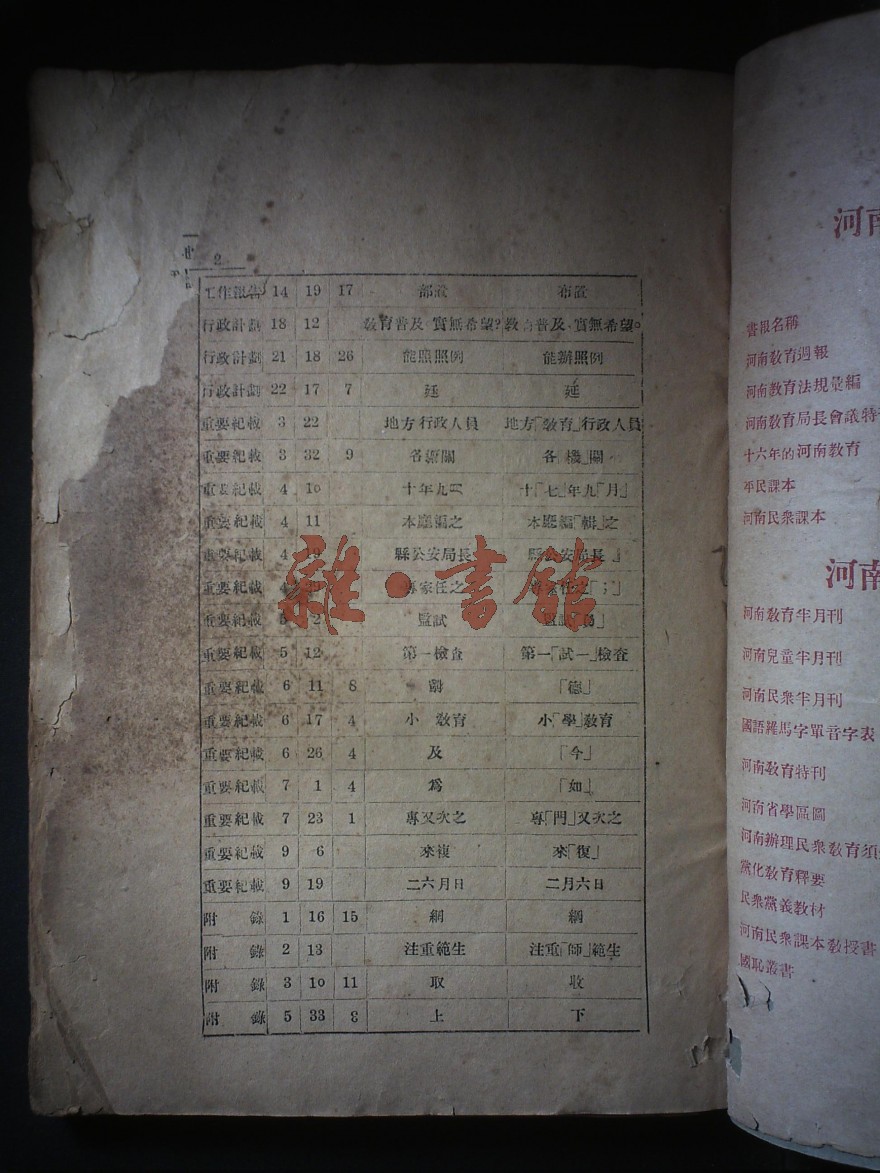 2
工作報告 14 19 17 部置 布置
行政計劃 18 12 教育普及，實無希望? 教育普及，實無希望。
行政計劃 21 18 26 能照照例 能辦照例
行政計劃 22 17 7
重要紀載 3 22 地方行政人員 地方「教育」行政人員
重要紀載 3 32 9 關 各「機」關
重要紀載 4 10 十年九 十「七」年九「月」
重要紀載 4 11 本廳編之 本廳編「輯」之
重要紀載 4 19 縣公安局長 縣公安局長」
重要紀載 4 專家任之 「；」
重要紀載 2 監試
重要紀載 5 12 第一檢查 第一「試一」檢查
重要紀載 6 11 8 「德」
重要紀載 6 17 4 小 教育 小「學」教育
重要紀載 6 26 4 及 「今」
重要紀載 7 1 4 為 「如」
重要紀載 7 23 1 專又次之 專「門」又次之
重要紀載 9 6 來複 來「復」
重要紀載 9 19 二六月日 二月六日
附錄 1 16 15 網
附錄 2 13 注重範生 注重「師」範生
附錄 3 10 11 取 收
附錄 5 33 8 上 下
雜·書館
河南
書報名稱
河南教育週報
河南教育法規彙編
河南教育局長會議特
十六年的河南教育
平民課本
河南民衆課本
河南
河南教育半月刊
河南兒童半月刊
河南民衆半月刊
國語羅馬字單音字表
河南教育特刊
河南省學區圖
河南辦理民衆教育須
黨化教育釋要
民衆黨義教材
河南民衆課本教授書
國恥叢書